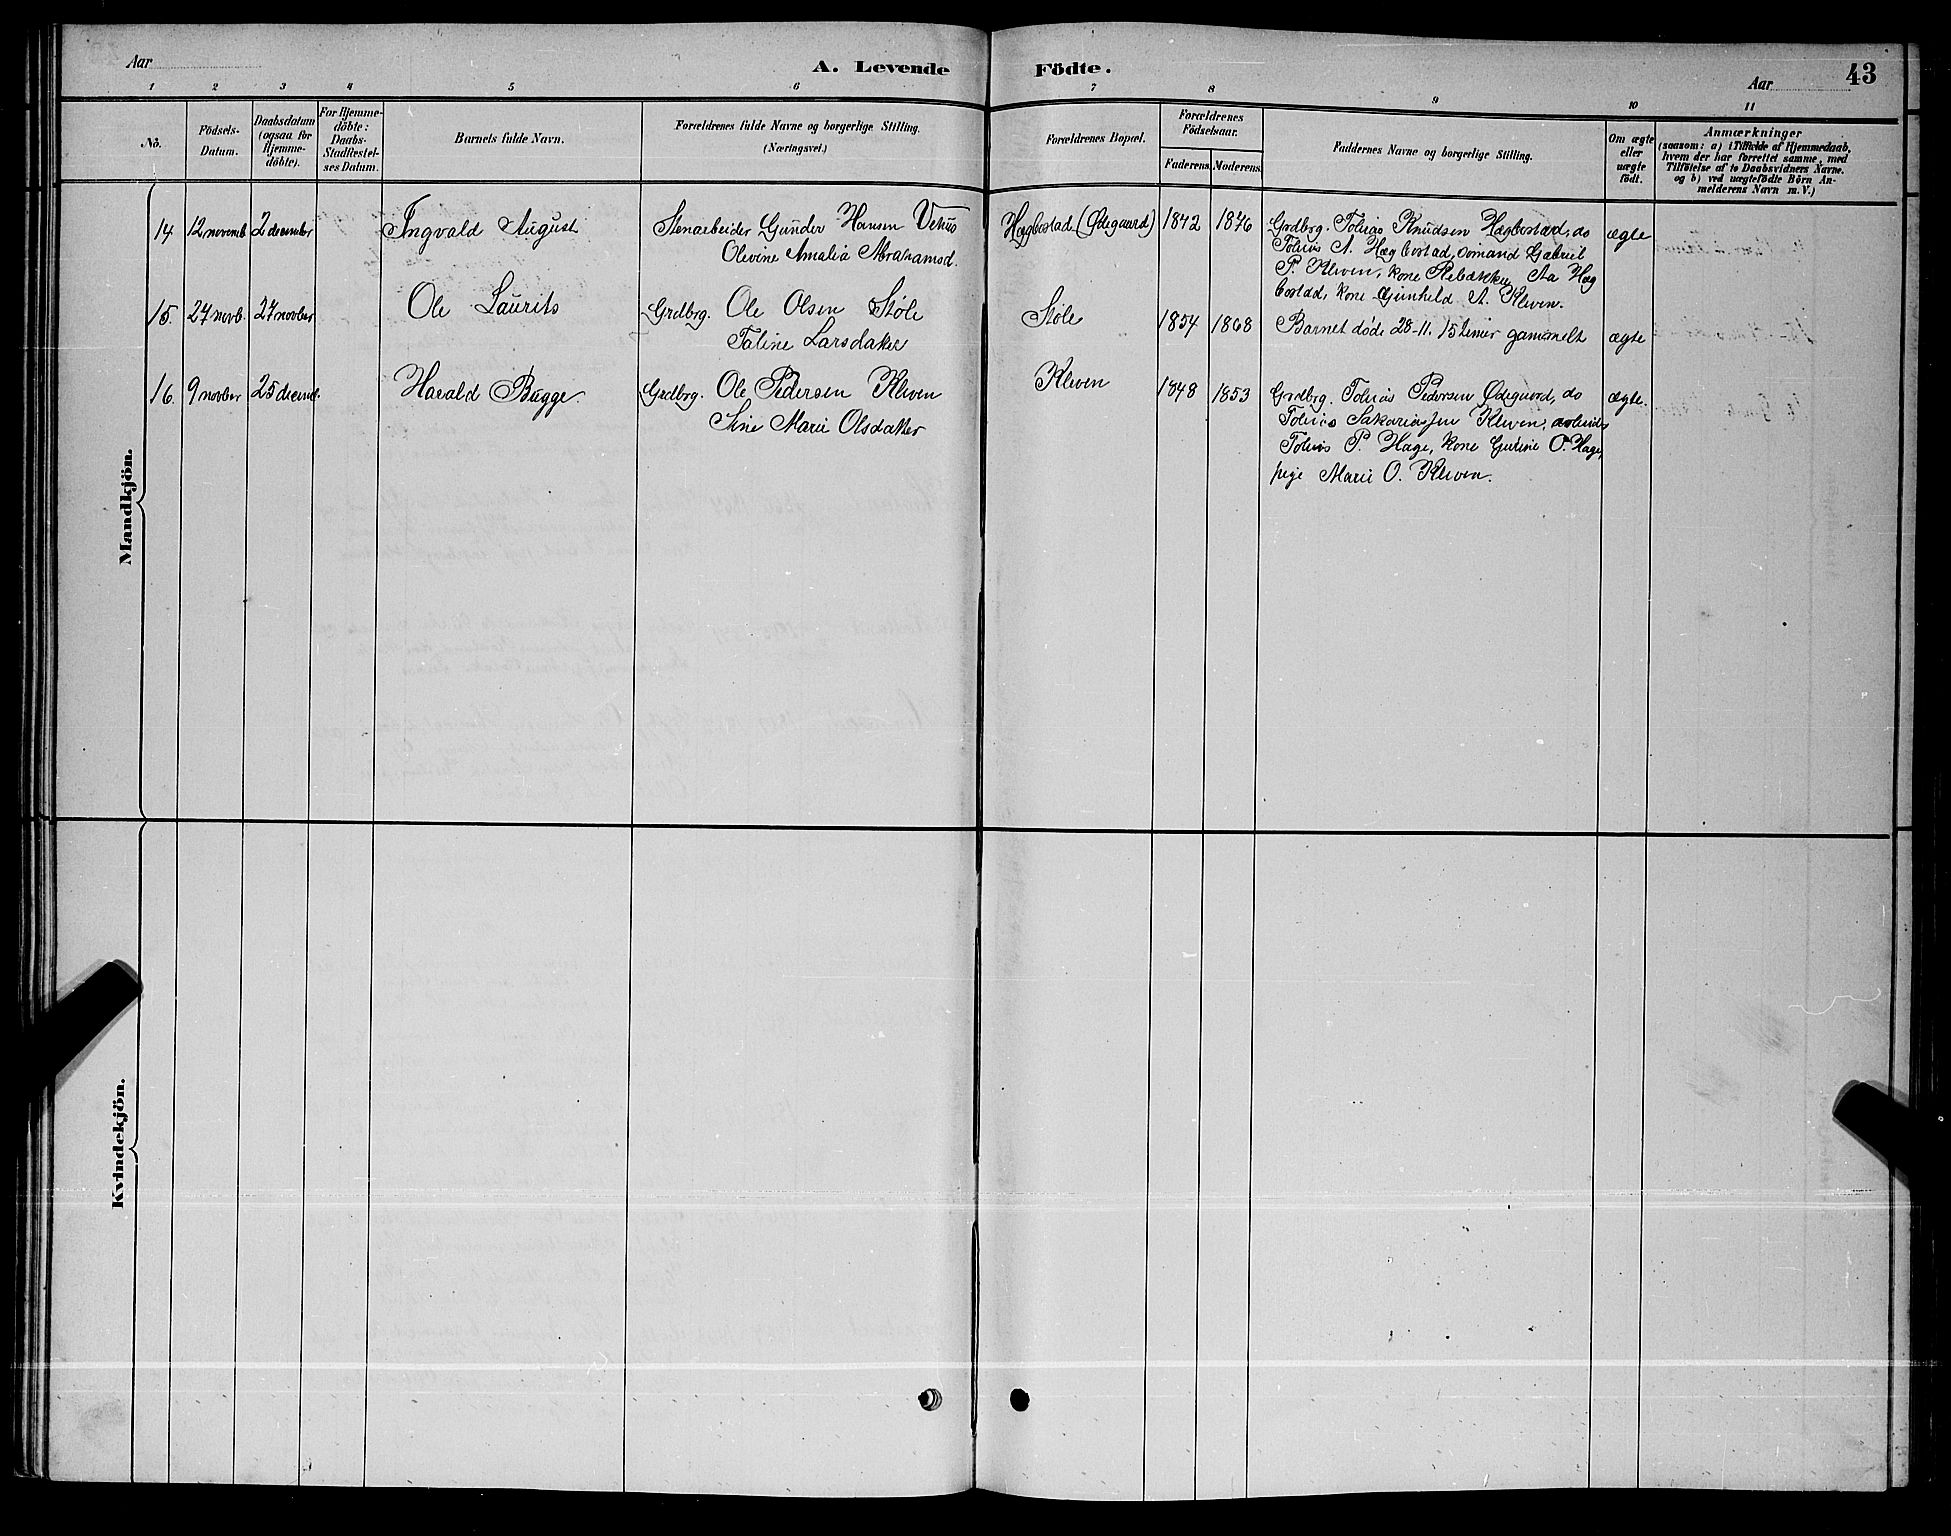 Aar
A. Levende Födte.
Aar
43
1 2 3 4 5 6 7 8 9 10 11
No.
Födsels-
Datum.
Daabsdatum
(ogsaa for
Hjemme-
döbte).
For Hjemme-
döbte:
Daabs-
Stadfestel-
ses Datum.
Barnets fulde Navn.
Forældrenes fulde Navne og borgerlige Stilling.
(Næringsvei.)
Forældrenes Bopæl.
Forældrenes
Födselsaar.
Faderens. Moderens.
Faddernes Navne og borgerlige Stilling.
Om ægte
eller
uægte
födt.
Anmærkninger
(saasom: a) i Tilfælde af Hjemmedaab,
hvem der har forrettet samme, med
Tilföielse af to Daabsvidners Navne.
og b) ved uægtefödte Börn An-
melderens Navn m. V.)
Mandkjön.
14 12 novemb 2 december Ingvald August Stenarbeider Gunder Hansen Vehus
Olevine Amalia Abrahamsd.
Hægbostad (Ødegaard) 1842 1846 Grdbrg. Tobias Knudsen Hægbostad, do
Tobias A. Hægbostad, somand Gabriel
P. Kleven, kone Rebækka Aa Hæg
bostad, kone Gunhild A. Kleven.
ægte
15. 27 novb. 27 novber Ole Laurits Grdbrg. Ole Olsen Støle
Taline Larsdatter
Støle 1854 1868 Barnet døde 28-11. 15 timer gammelt ægte
16. 9 novber 25 decemb. Harald Bugge Grdbrg. Ole Pedersen Kleven
Sine Marie Olsdatter
Kleven 1848 1853 Grdbrg. Tobias Pedersen Ødegaard, do
Tobias Sakariasen Kleven,
Tobias P. Hage, kone Gurine O. Hage,
pige Marie O. Kleven.
ægte.
Kvindekjön.